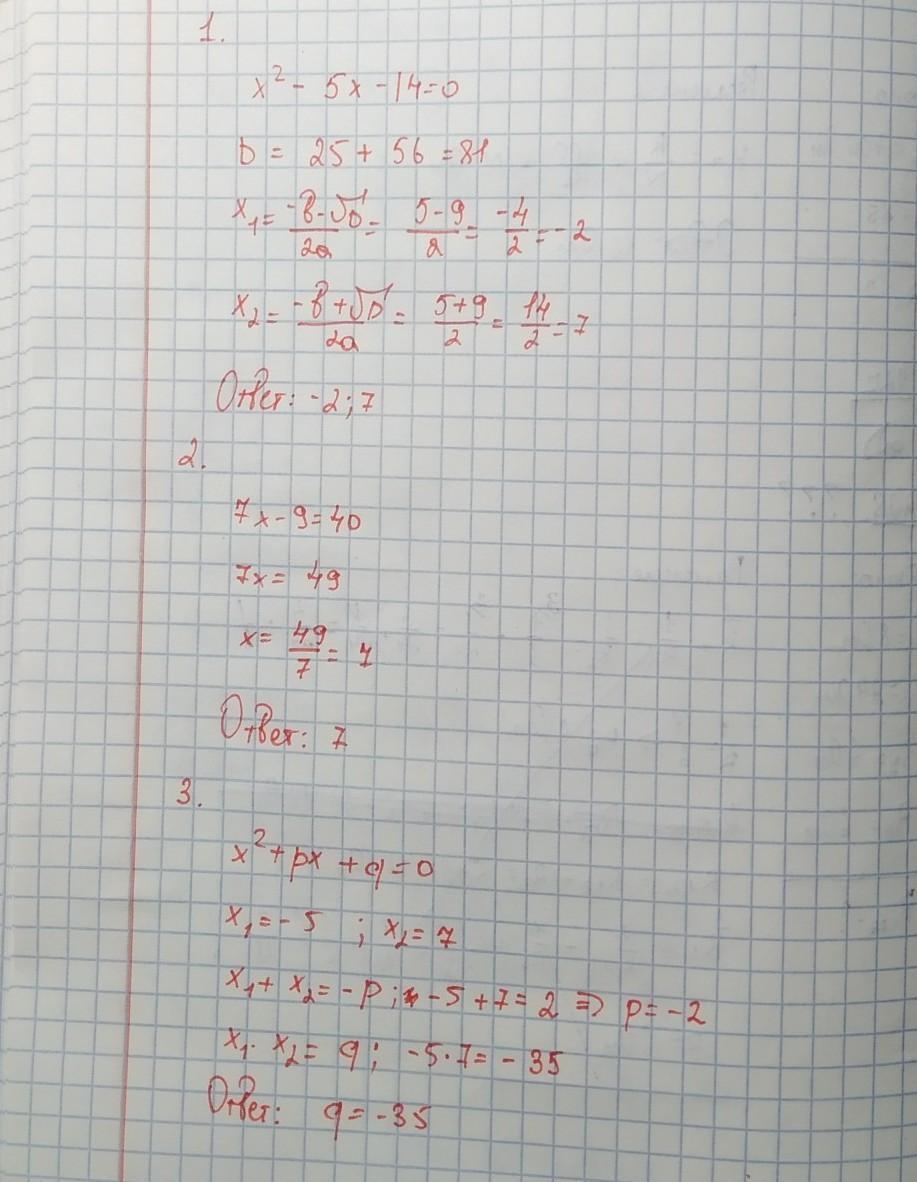 1.
x² - 5x - 14 = 0
D = 25 + 56 = 81
x₁ = (-в - √D)/2a = (5-9)/2 = -4/2 = -2
x₂ = (-в + √D)/2a = (5+9)/2 = 14/2 = 7
Ответ: -2; 7
2.
7x - 9 = 40
7x = 49
x = 49/7 = 7
Ответ: 7
3.
x² + px + q = 0
x₁ = -5 ; x₂ = 7
x₁ + x₂ = -p ; -5 + 7 = 2 ⇒ p = -2
x₁ · x₂ = q ; -5 · 7 = -35
Ответ: q = -35